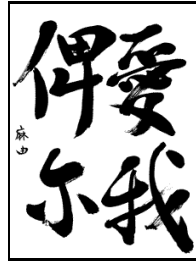 愛我
俾尔
麻由